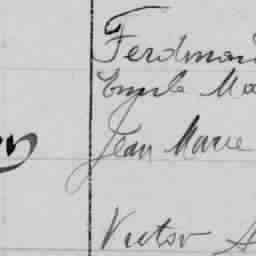 Ferdinan
Emile Ma
Jean Marie
Victor A